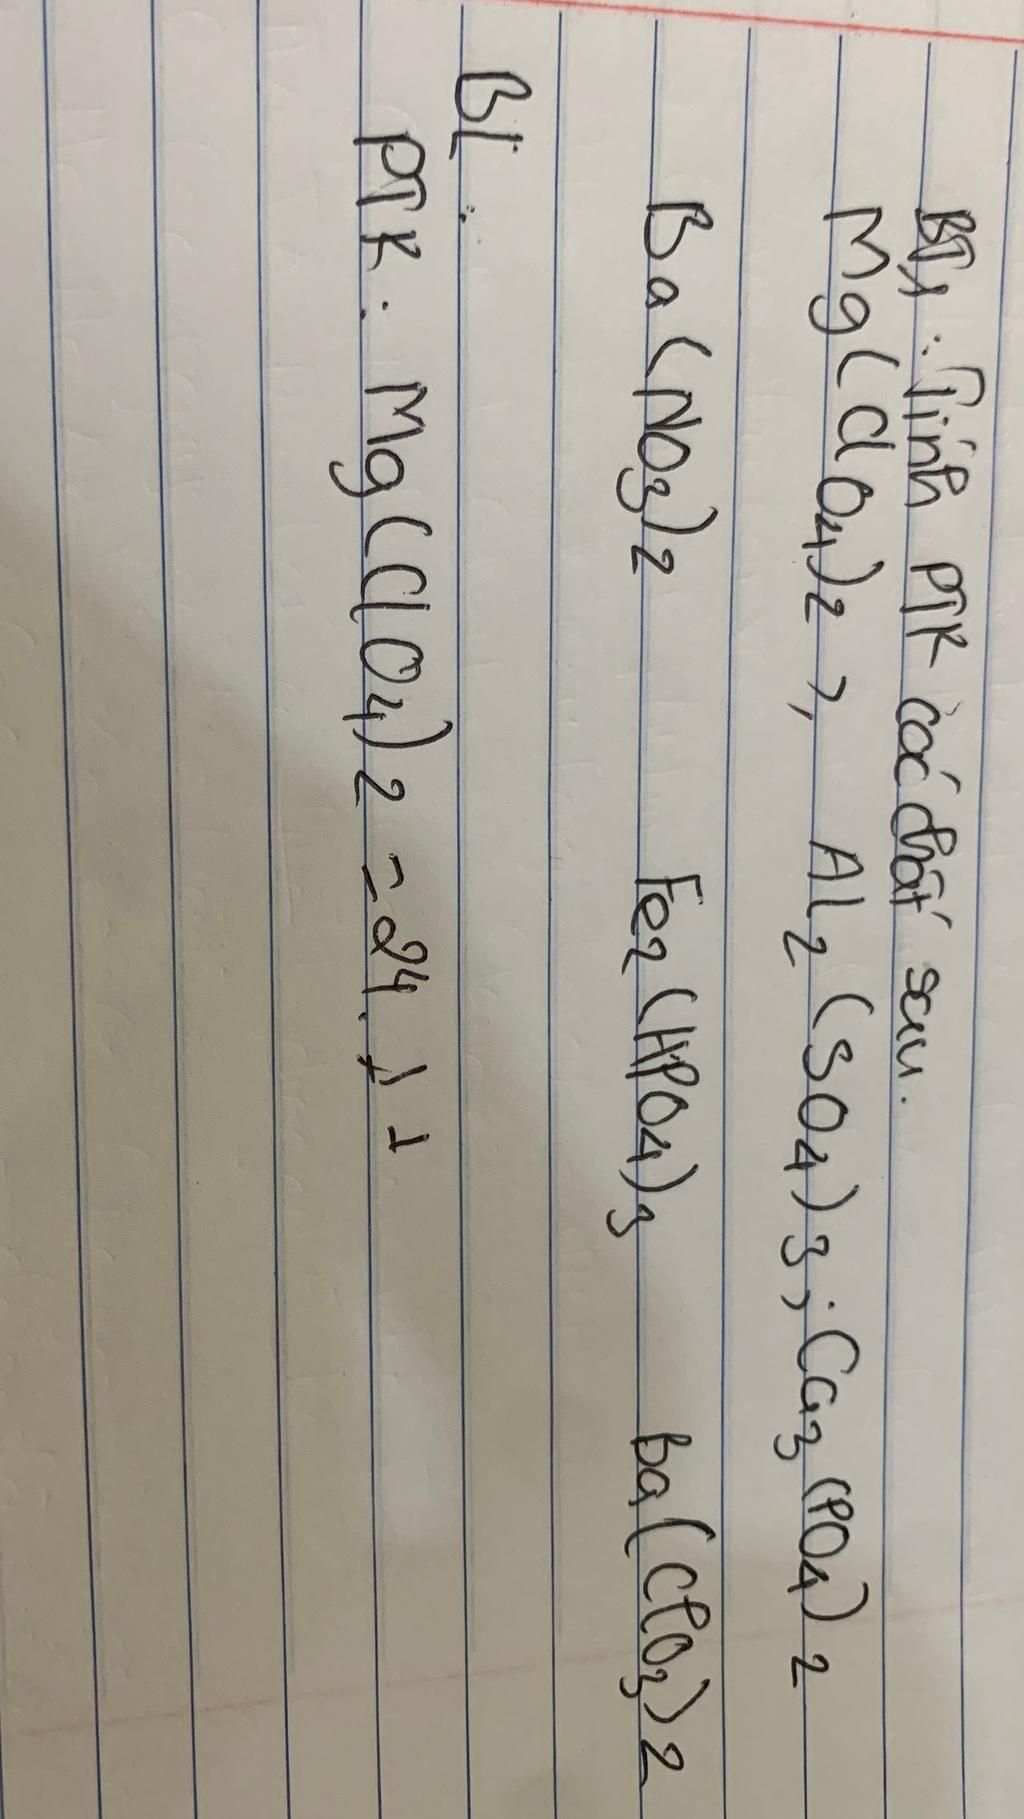 BT1: Tính PTK các chất sau.
Mg(ClO4)2, Al2(SO4)3; Ca3(PO4)2
Ba(NO3)2 Fe2(HPO4)3 Ba(ClO3)2
BL:
PTK: Mg(ClO4)2 = 24.1+